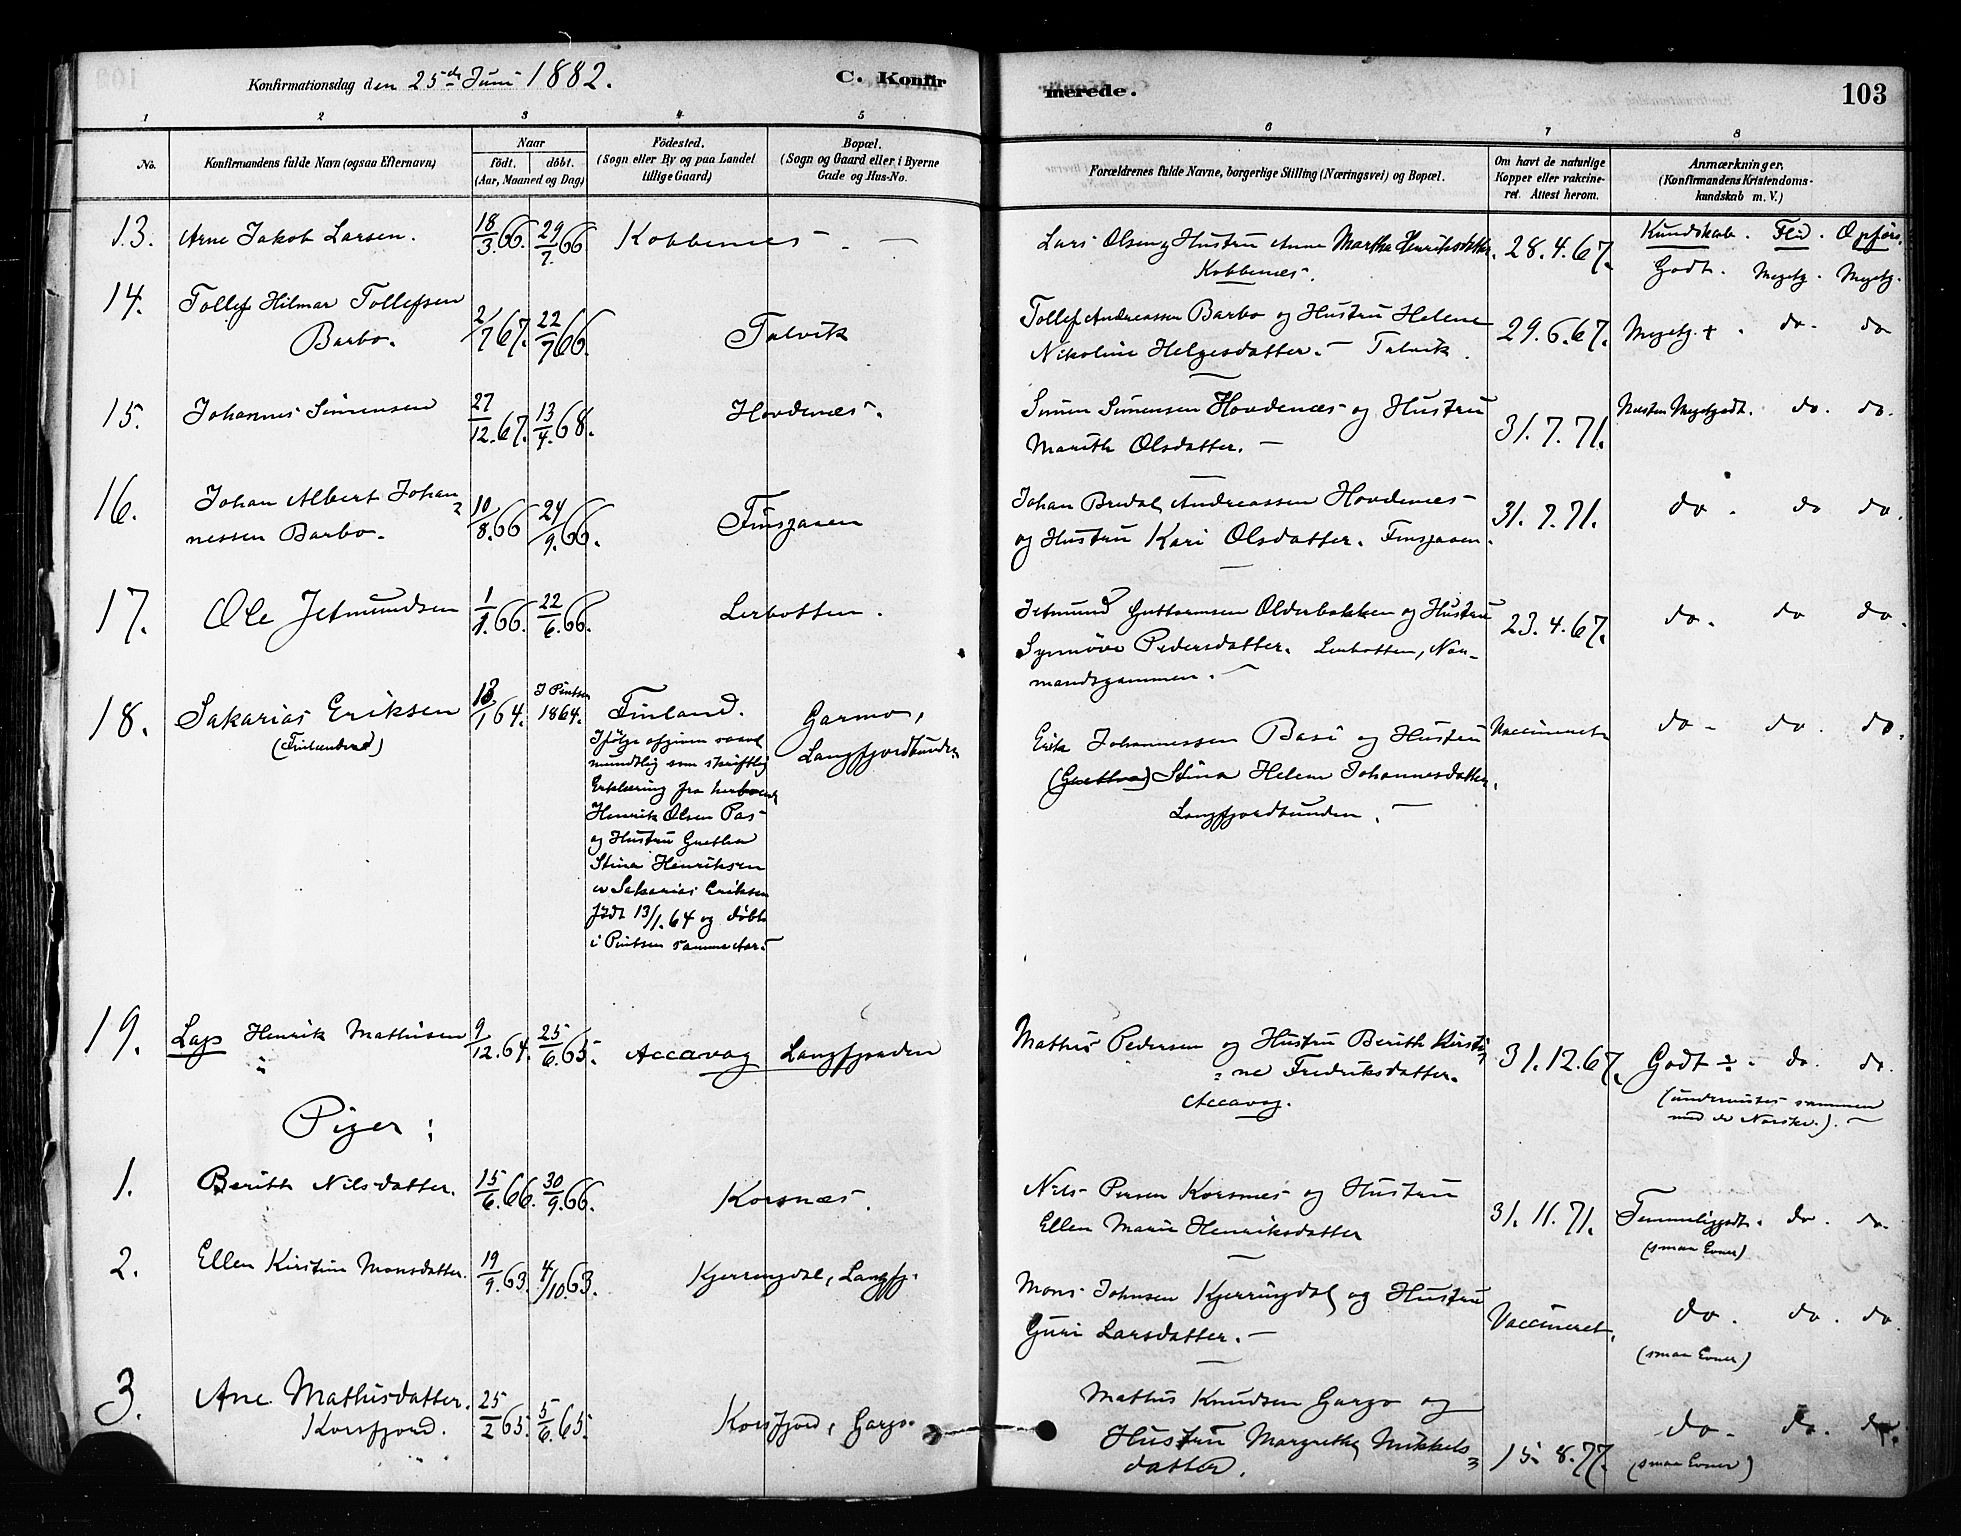 Konfirmationsdag den 25de Juni 1882.
C. Konfirmerede.
103
1 2 3 4 5 6 7 8
No.
Konfirmandens fulde Navn (ogsaa Efternavn)
Naar
födt. döbt.
(Aar, Maaned og Dag)
Födested.
(Sogn eller By og paa Landet
tillige Gaard)
Bopæl.
(Sogn og Gaard eller i Byerne
Gade og Hus-No.
Forældrenes fulde Navne, borgerlige Stilling (Næringsvei) og Bopæl.
Om havt de naturlige
Kopper eller vakcine-
ret. Attest herom.
Anmærkninger,
(Konfirmandens Kristendoms-
kundskab m. V.)
Kundskab. Flid. Opförs.
13. Arne Jakob Larsen. 18/3 66. 29/7 66 Kobbenes - . - Lars Olsen og Hustru Anne Martha Henriksdatter. 28.4.67. Godt. Megetg. Megetg.
Kobbenes.
14. Tollef Hilmar Tollefsen 2/7 67. 22/7 66. Talvik Tollef Andreassen Barbo og Hustru Helene 29.6.67. Megetg. + . do. do
Barbo. Nikoline Helgesdatter. - Talvik.
15. Johannes Simensen 27/12 67. 13/4 68. Hovdenæs. Simen Simensen Hovdenæs og Hustru 31.7.71. Næsten Megetgodt. do. do.
Marith Olsdatter. -
16. Johan Albert Johan= 10/8 66 24/9 66. Finsjaaen Johan Bredal Andreassen Hovdenes 31.7.71. do. do do.
nessen Barbo. og Hustru Kari Olsdatter. Finsjaaen.
17. Ole Jetmundsen 1/1 66. 22/6 66. Lerbotten. Jetmund Guttormsen Olderbakken og Hustru 23.4.67. do. do do.
Synnöve Pedersdatter. Lerbotten, Nor-
mandsgammen.
18. Sakarias Eriksen 13/1 64. I Pintsen 1864. Finland. Garmo, Erik Johannessen Basi og Hustru Vaccineret do - do. do.
Langfjordbunden (Grethe) Stina Helene Johannesdatter.
Langfjordbunden. -
Ifölge afgiven saavel
mundtlig som skriftlig
Erklæring fra herboende
Henrik Olsen Pas-
og Hustru Grethe
Stina Henriksen
er Sakarias Eriksen
födt 13/1.64 og döbt
i Pintsen samme Aar.
19. Lap Henrik Mathisen 9/12 64. 25/6 65. Accavag Langfjorden Mathis Pedersen og Hustru Berith Kirsti= 31.12.67. Godt ÷. do. do.
ne Fredriksdatter. (undervistes sammen
Accavag. med de Norske.). -
Piger:
1. Berith Nilsdatter. 15/6 66. 30/9 66. Korsnæs. Nils Persen Korsnes og Hustru 31.11.71. Temmeliggodt. do. do.
Ellen Marie Henriksdatter (smaa Evner)
2. Ellen Kirstine Monsdatter. 19/9 63. 4/10 63. Kjerringdal, Langfj. Mons Johnsen Kjerringdal og Hustru Vaccineret. do. do. do.
Guri Larsdatter. - (smaa Evner)
3. Ane Mathisdatter. 25/2 65. 5/6 65. Korsfjord, Gargo. Mathis Knudsen Gargo og 15.8.77. do. do. do.
Korsfjord. Hustru Margrethe Mikkels= (smaa Evner)
datter.